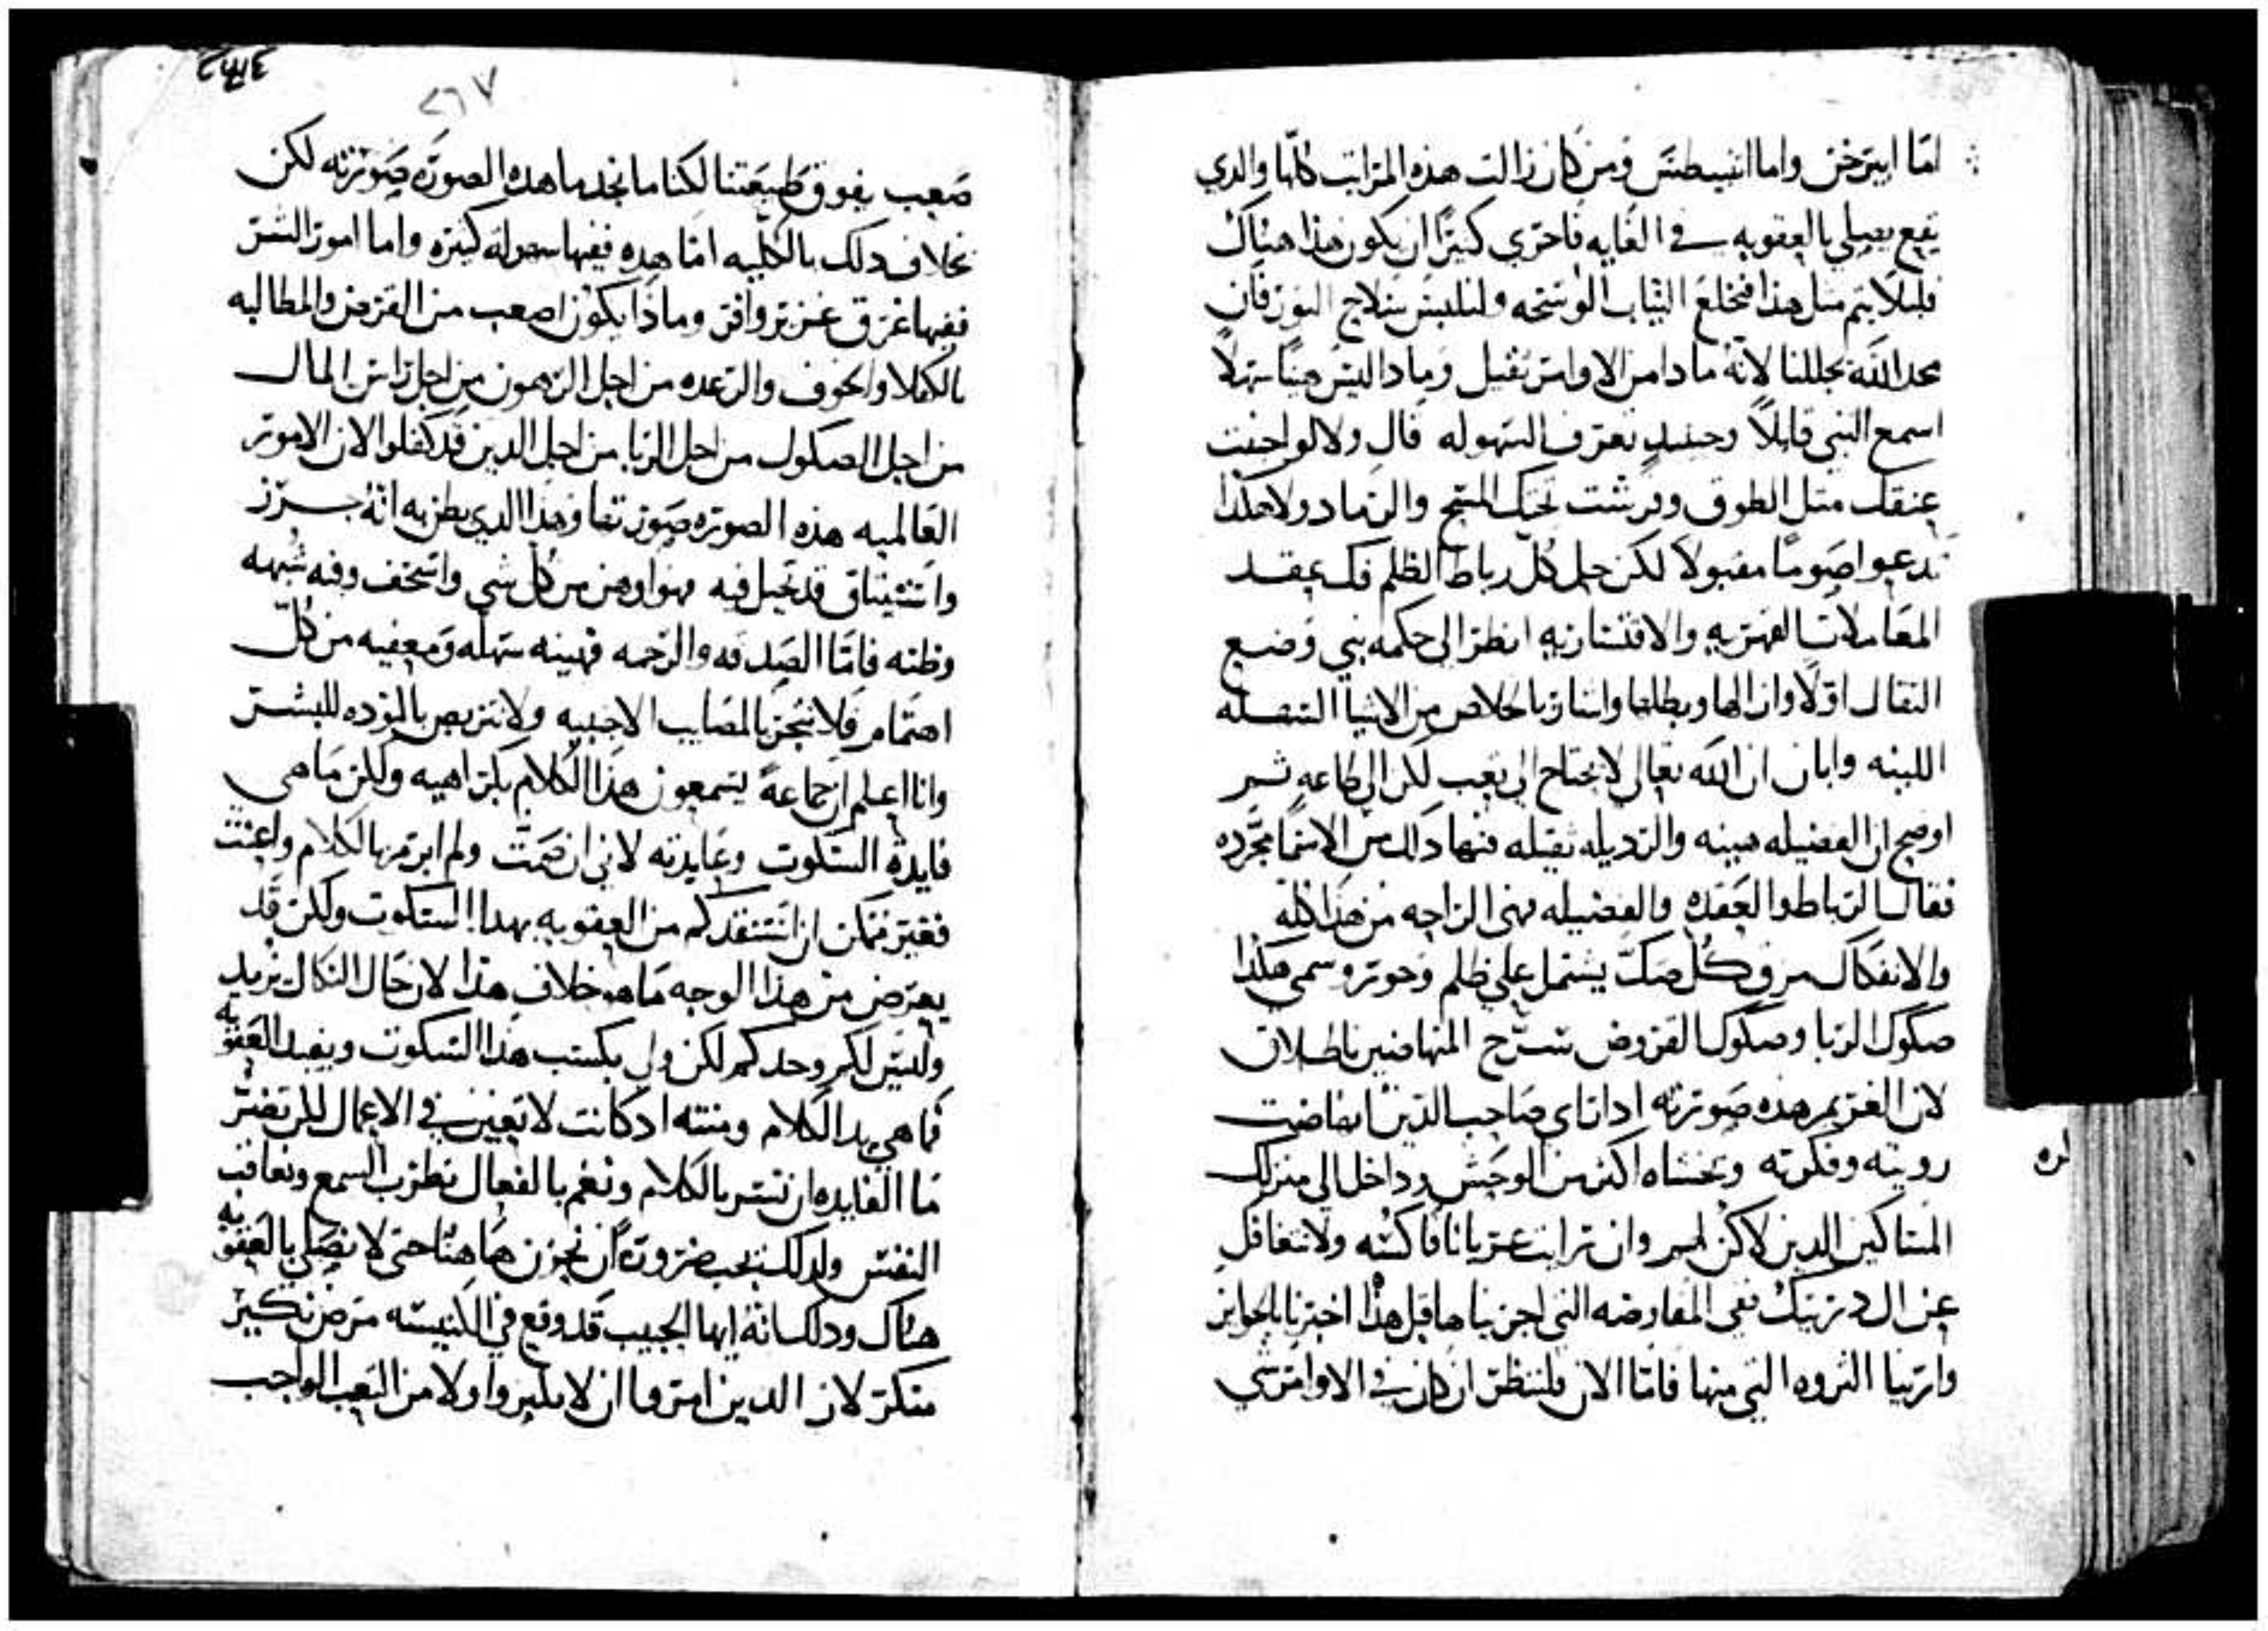 اما ابيرخس واما انبيطس ومن كان زالت هذه المراتب كلها والدي
يقع يصلي بالعقوبه في الغايه فاحري كتيرًا ان يكون هذا هناك
فليلا يتم متل هذا فنخلع التياب الوسخه ولنلبس سلاح النور فان
مجد الله يجللنا لانه مادا من الاوامر تقيل ومادا ليس هينًا سهلًا
اسمع النبي قايلًا وحينيد تعرف السهوله قال ولا لو احنيت
عنقك متل الطوق وفرشت تحتك المسح والرماد ولا هكدا
تدعوا صومًا مقبولا لكن حل كل رباط الظلم فك عقد
المعاملات القهريه والاقتساريه انظر الى حكمه نبي وضع
التقال اولًا وازالها وبطلها واشار بالخلاص من الاشيا السهله
اللينه وابان ان الله تعالى لا يحتاج الى تعب لكن الى طاعه تم
اوضح ان الفضيله هينه والرديله تقيله فنها دلك من الاسما مجرده
فقال الرباط والعقده والفضيله فهي الراحه من هذا كله
والانفكاك مزق كل صك يشتمل على ظلم وجور وسمى هكدا
صكوك الربا وصكوك القروض سرح المنهاضين باطلاق
لان الغريم هده صورته ادا راى صاحب الدين انهاضت
رويته وفكرته ويخشاه اكتر من الوحش وداخل الى منزلك
لره
المساكين الدين لا كن لهم وان رايت عريانًا فاكسه ولا تتغافل
عن ال دريتك ففي المفاوضه التي اجريناها قبل هذا اخبرنا بالجوايز
وارينا التروه التي منها فاما الان فلننظر ان كان في الاوامر شي
٢٦٧
صعب يفوق طبيعتنا لكنا ما نجد ما هده الصوره صورته لكن
بخلاف دلك بالكليه اما هده ففيها سهوله كتيره واما امور الشر
ففيها عرق غزير وافر وماذا يكون اصعب من القرض والمطالبه
بالكفلا والخوف والرعده من اجل الرهون من اجل راس المال
من اجل الصكوك من اجل الربا من اجل الدين قد كفلوا لان الامور
العالميه هذه الصوره صورتها وهذا الدي يظن به انه حرز
واستيتاق قد تحيل فيه فهو اوهن من كل شي واسخف وفيه شبهه
وظنه فاما الصدقه والرحمه فهينه سهله ومعفيه من كل
اهتمام فلا نتجر بالمصايب الاجنبيه ولا نتربص بالتوده للبشر
وانا اعلم ان جماعةً يسمعون هذا الكلام بكراهيه ولكن ما هي
فايدة السكوت وعايدته لاني ان صمت ولم ابرمها الكلام واعنت
فغير ممكن ان استنقدكم من العقوبه بهدا السكوت ولكن قد
يعرض من هذا الوجه ما هو خلاف هذا لان حال النكال يزيد
وليس لكم وحدكم لكن ولي يكسب هذا السكوت ويفيد العقوبه
فما هي يد الكلام ومنته اد كانت لا تعين في الاعمال بل تضر
ما الفايده ان نسر بالكلام ونغم بالفعال نطرب السمع ونعاقب
النفس ولدلك يجب ضرورةً ان نحزن هاهنا حتى لا نصلي بالعقوبه
هناك ودلك انه ايها الحبيب قد وقع في الكنيسه مرض نكير
منكر لان الدين امروا ان لا يكنزوا ولا من التعب الواجب